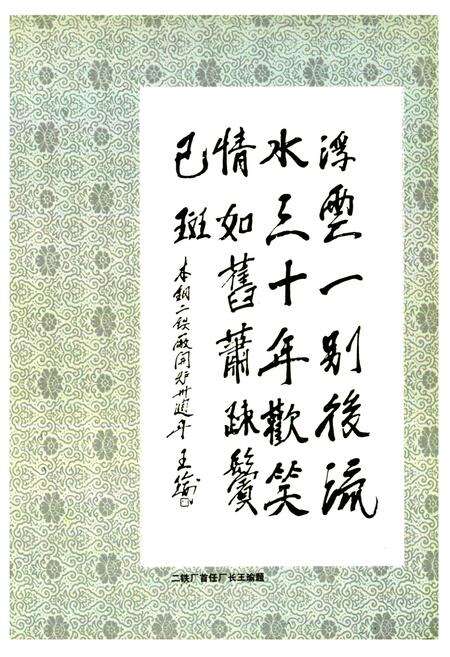 浮雲一别後流
水三十年歡笑
情如舊蕭疎鬢
已斑
本钢二铁厰开炉卅週年 王瑜
二铁厂首任厂长王瑜题